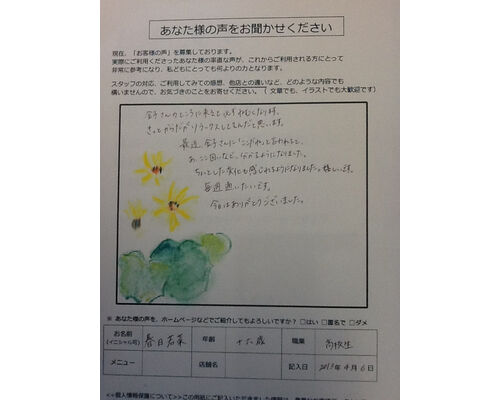 あなた様の声をお聞かせください
現在、「お客様の声」を募集しております。
実際にご利用くださったあなた様の率直な声が、これからご利用される方にとって
非常に参考になり、私どもにとっても何よりの力となります。
スタッフの対応、ご利用してみての感想、他店との違いなど、どのような内容でも
構いませんので、お気づきのことをお寄せください。（ 文章でも、イラストでも大歓迎です）
金子さんのところに来ると必ずねむくなります。
きっとからだがリラックスしてるんだと思います。
最近 金子さんに「ここがね」と言われると、
あ、ここ固いなど、分かるようになりました。
ちょっとした変化も感じれるようになりました。嬉しいです。
毎週通いたいです。
今日はありがとうございました。
※ あなた様の声を、ホームページなどでご紹介してもよろしいですか？ □はい □匿名で □ダメ
お名前 (イニシャル可) 春日若菜 年齢 十七歳 職業 高校生
メニュー 店舗名 記入日 2013年4月6日
<<個人情報保護について>>この用紙にご記入いただきました情報は、